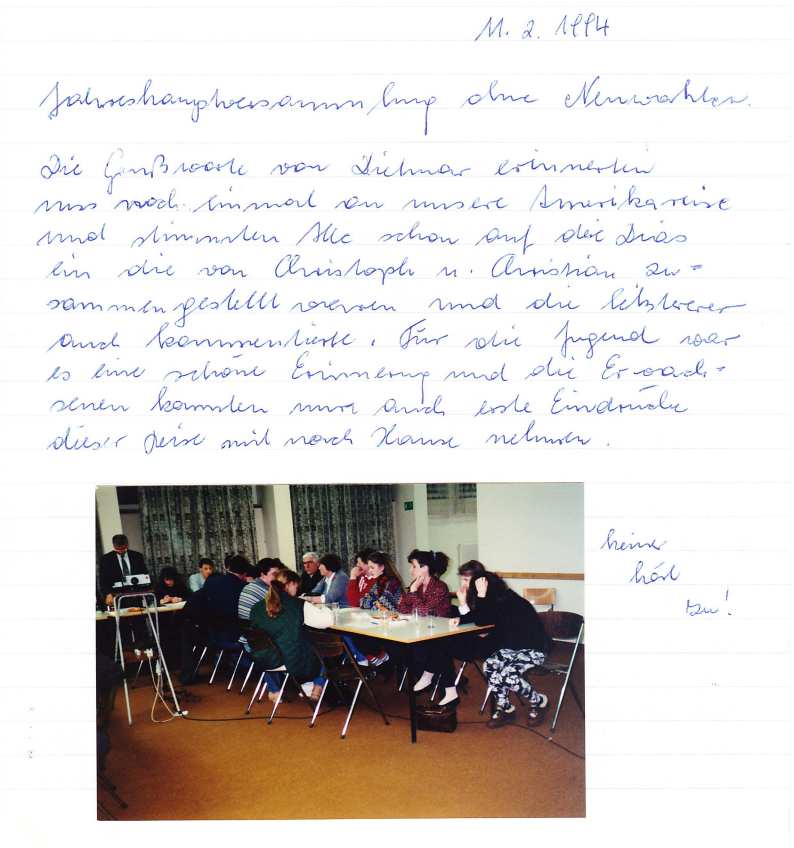 11. 2. 1994
Jahreshauptversammlung ohne Neuwahlen.
Die Grußworte von Dietmar erinnerten
uns noch einmal an unsere Amerikareise
und stimmten Alle schon auf die Dias
ein die von Christoph u. Christian zu=
sammengestellt waren und die letzterer
auch kommentierte. Für die Jugend war
es eine schöne Erinnerung und die Erwach=
senen konnten nun auch erste Eindrücke
dieser Reise mit nach Hause nehmen.
keiner
hört
zu!